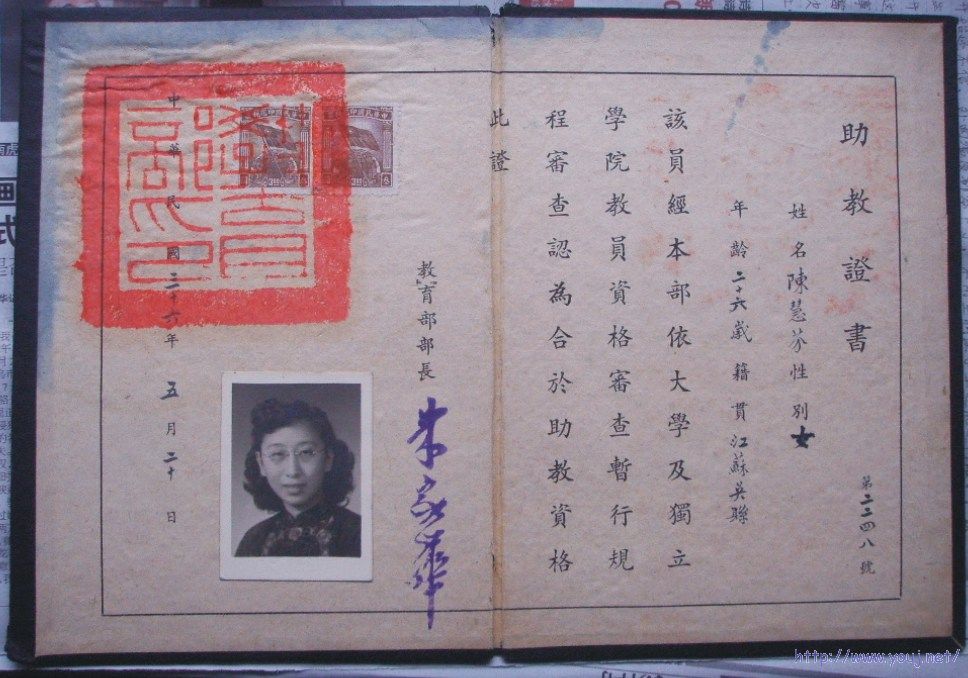 助教證書
第二二四八號
姓名陳慧芬性別女
年齡二十六歲籍貫江蘇吳縣
該員經本部依大學及獨立
學院教員資格審查暫行規
程審查認為合於助教資格
此證
教育部部長
朱家驊
中華民國三十六年五月二十日
http://www.youj.net/